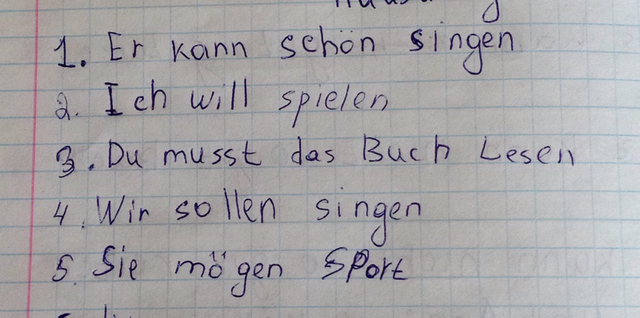 1. Er kann schön singen
2. Ich will spielen
3. Du musst das Buch Lesen
4. Wir sollen singen
5. Sie mögen Sport